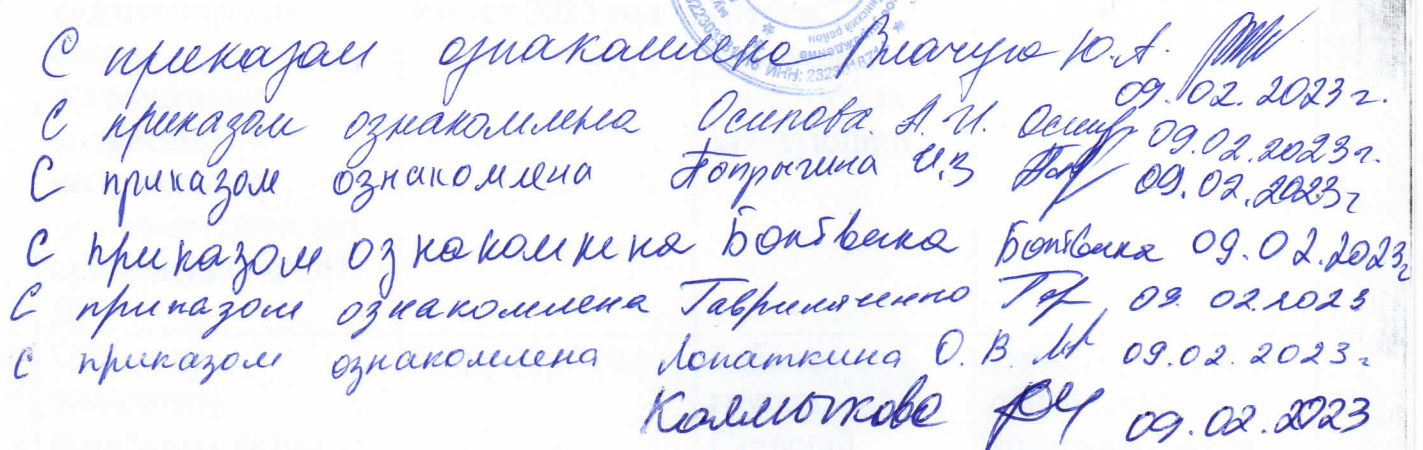 С приказом ознакомлена Ю.А. 09.02.2023г.
С приказом ознакомлена Осипова А.И. 09.02.2023г.
С приказом ознакомлена Попрыгина И.З 09.02.2023г
С приказом ознакомлена 09.02.2023г
С приказом ознакомлена Гавриляченко 09.02.2023
С приказом ознакомлена Лопаткина О.В. 09.02.2023г
Калмыкова 09.02.2023